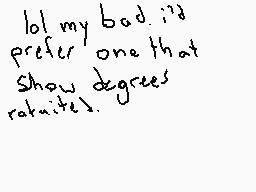 lol my bad. i'd
prefer one that
show degrees
rotaited.